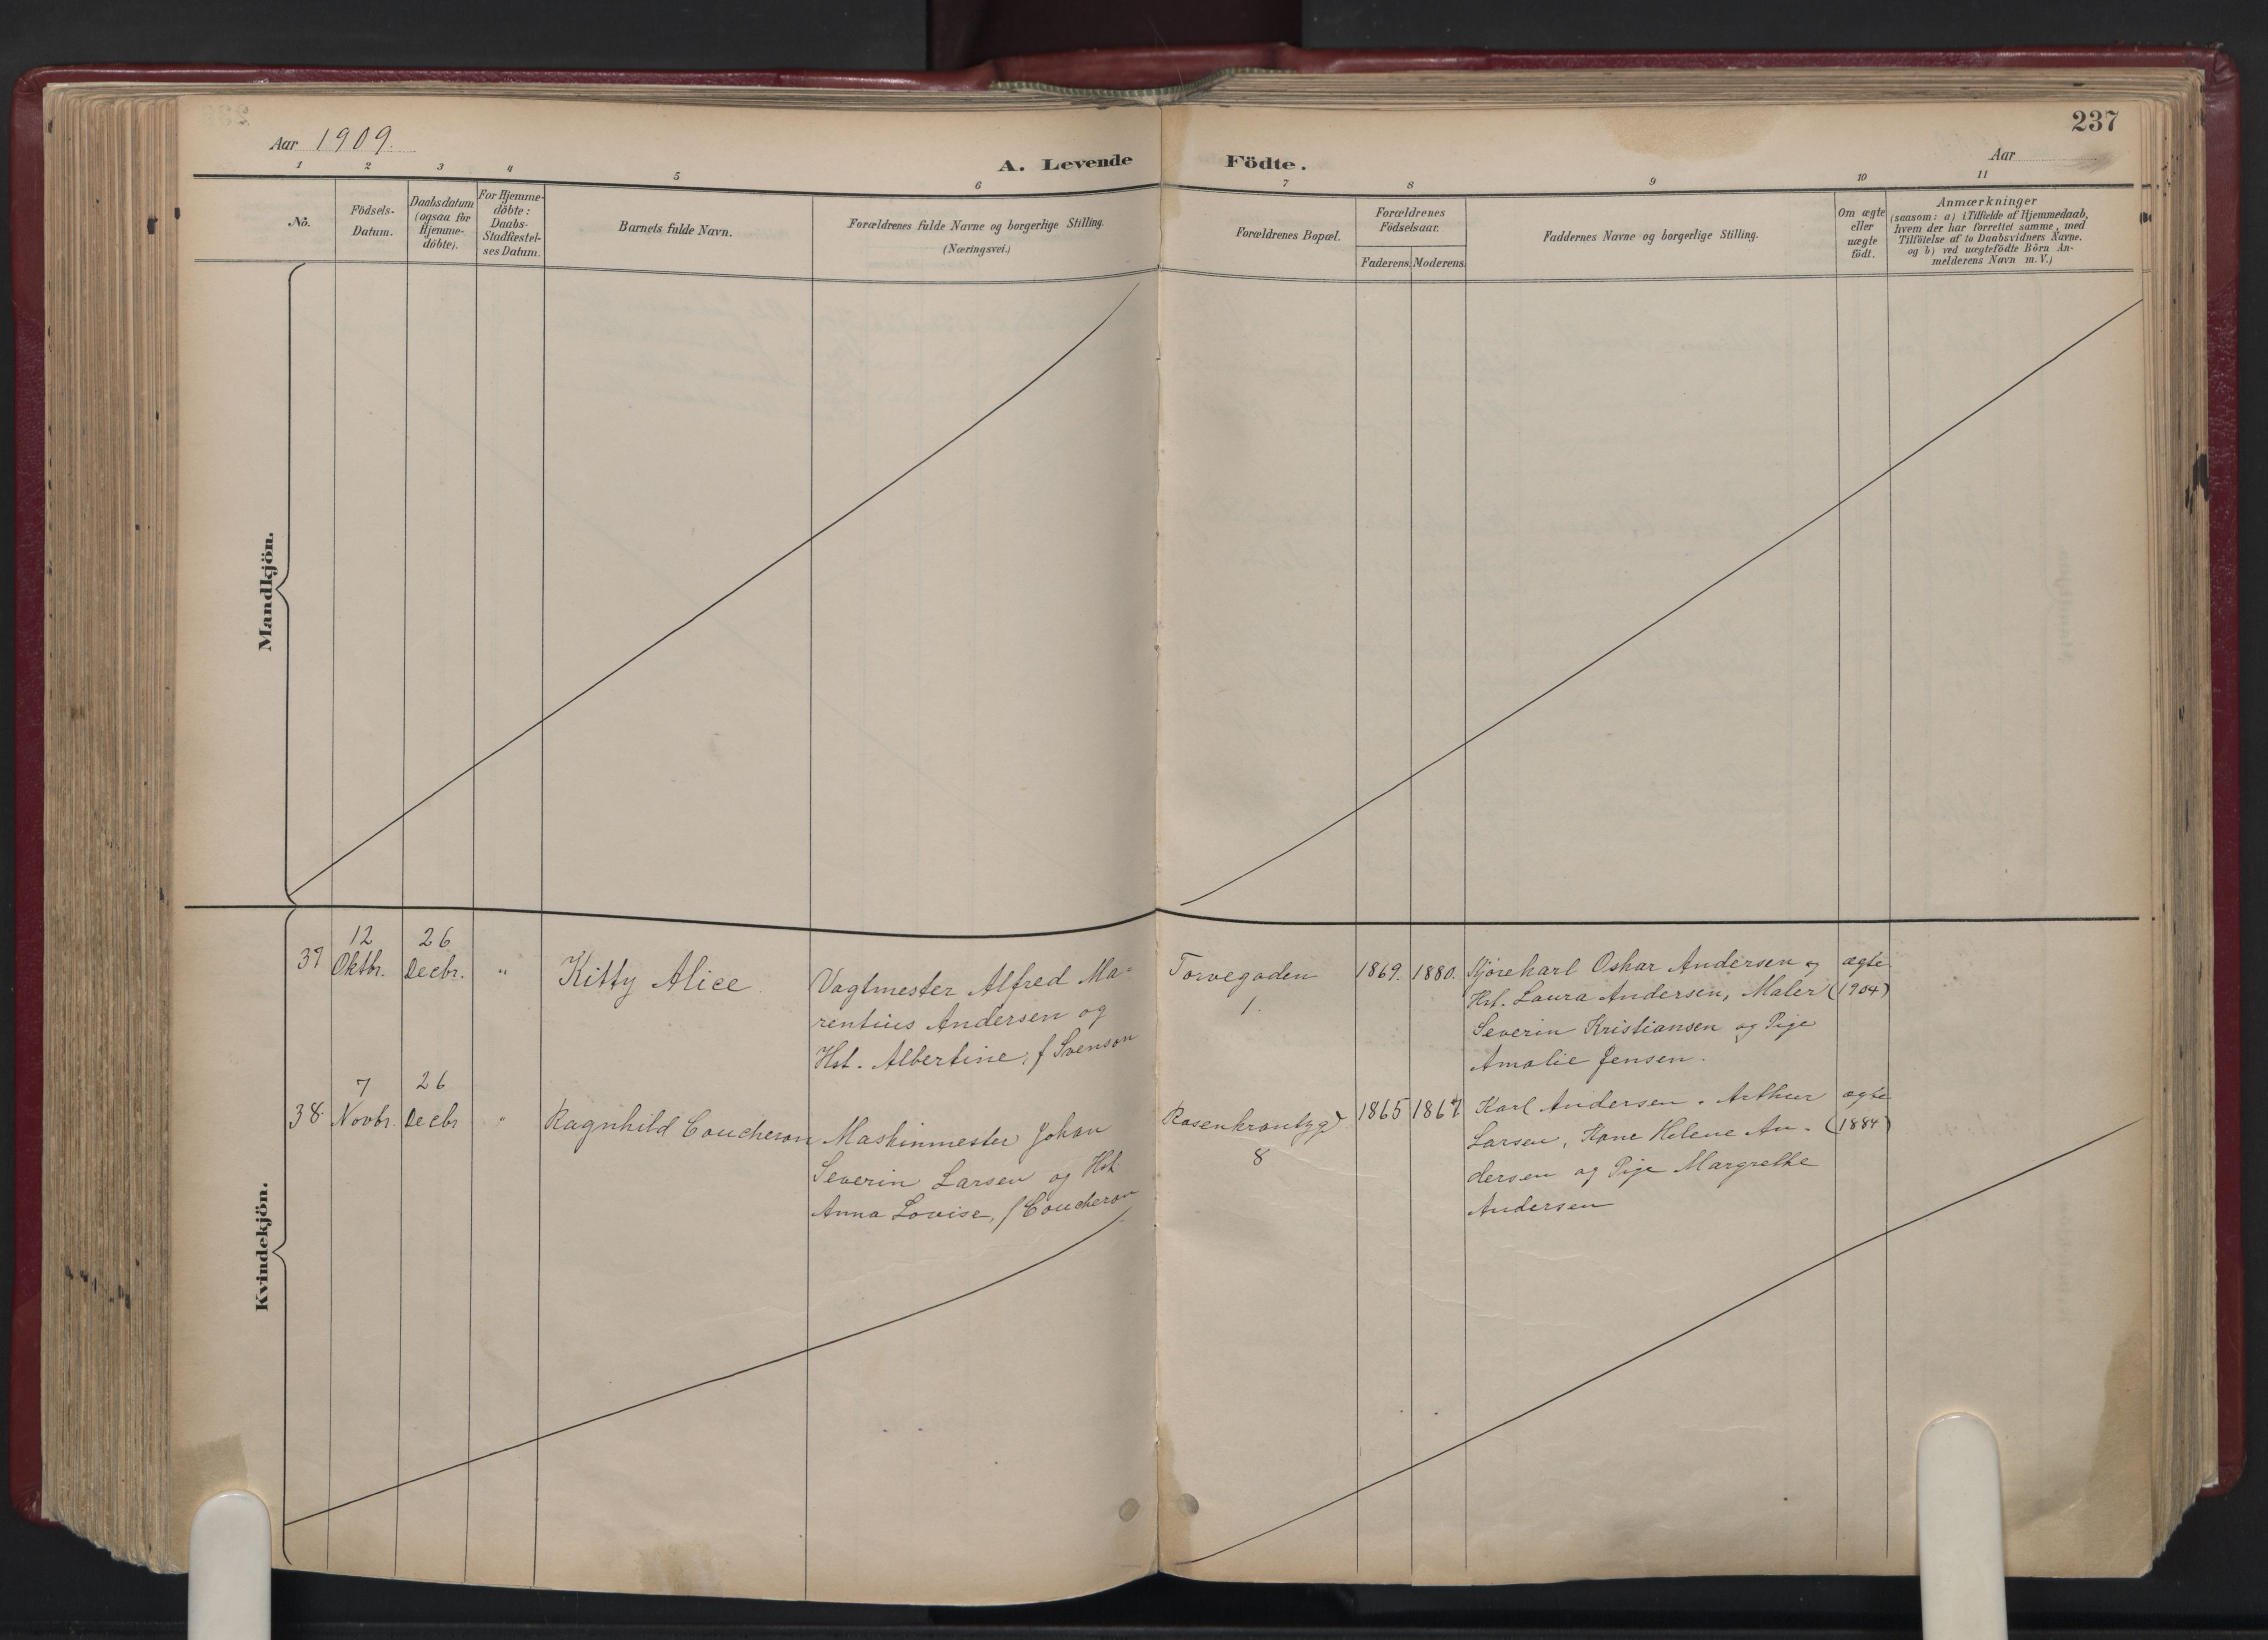 237
Aar 1909.
A. Levende Födte.
Aar
1 2 3 4 5 6 7 8 9 10 11
No.
Födsels-
Datum.
Daabsdatum
(ogsaa for
Hjemme-
döbte).
For Hjemme-
döbte:
Daabs-
Stadfæstel-
ses Datum.
Barnets fulde Navn.
Forældrenes fulde Navne og borgerlige Stilling.
(Næringsvei.)
Forældrenes Bopæl.
Forældrenes
Födselsaar.
Faderens. Moderens.
Faddernes Navne og borgerlige Stilling.
Om ægte
eller
uægte
födt.
Anmærkninger
(saasom: a) i Tilfælde af Hjemmedaab,
hvem der har forrettet samme, med
Tilföielse af to Daabsvidners Navne.
og b) ved uægtefödte Börn An-
melderens Navn m. V.)
Mandkjön.
Kvindekjön.
37
12
Oktbr.
26
Decbr.
"
Kitty Alice
Vagtmester Alfred Ma-
rentius Andersen og
Hst. Albertine, f Svenson
Torvegaden
1.
1869. 1880.
Oskar Andersen og
Hst. Laura Andersen, Maler
Severin Kristiansen og Pige
Amalie Jensen.
ægte
(1904)
38
7
Novbr.
26
Decbr
"
Ragnhild Coucheron
Maskinmester Johan
Severin Larsen og Hst.
Anna Lovise, f Coucheron
Rosenkrantzgd
8
1865 1867
Karl Andersen. Arthur
Larsen, Kone Helene An-
dersen og Pige Margrethe
Andersen
ægte
(1884)